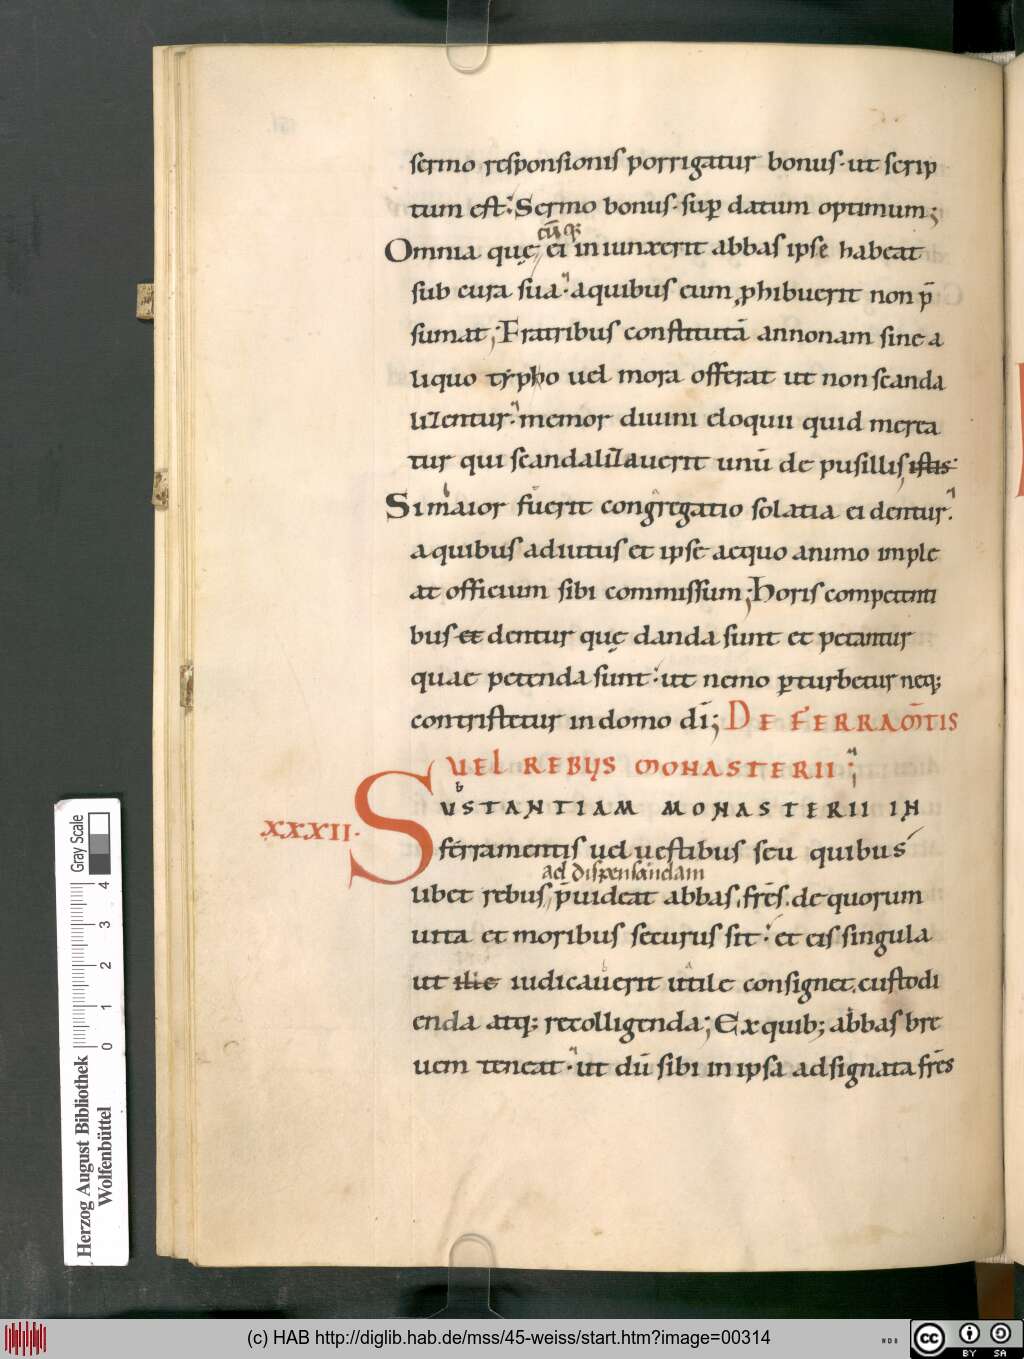 sermo responsionis porrigatur bonus · ut scrip
tum est ; Sermo bonus · sup datum optimum ;
cūq;
Omnia quę ei iniunxerit abbas ipse habeat
sub cura sua · a quibus eum ,phibuerit non p̄
sumat ; Fratribus constitutā annonam sine a
liquo typho uel mora offerat ut non scanda
lizentur · memor diuini eloquii quid merea
tur qui scandalizauerit unū de pusillis istis
Si maior fuerit congregatio solatia ei dentur .
a quibus adiutus et ipse aequo animo imple
at officium sibi commissum ; Horis competenti
bus et dentur quę danda sunt et petantur
quae petenda sunt · ut nemo pturbetur neq;
contristetur in domo dī ; DE FERRAM̄TIS
UEL REBUS MONASTERII ;
b
XXXII · SUSTANTIAM MONASTERII IN
ferramentis uel uestibus seu quibus
ad dispensandam
libet rebus p̄uideat abbas . frēs . de quorum
uita et moribus securus sit · et eis singula
ut ille iudicauerit utile consignet custodi
enda atq; recolligenda ; Ex quib; abbas bre
uem teneat · ut dū sibi in ipsa adsignata frēs
Gray Scale
4
3
2
1
0
Herzog August Bibliothek
Wolfenbüttel
(c) HAB http://diglib.hab.de/mss/45-weiss/start.htm?image=00314
WDB
cc
BY SA